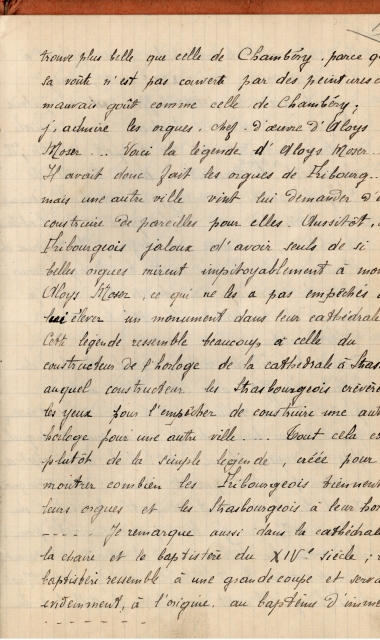 trouve plus belle que celle de Chambéry, parce q
sa voûte n'est pas couverte par des peintures d
mauvais goût comme celle de Chambéry ;
j'admire les orgues, chef-d'œuvre d'Aloys
Moser ... Voici la légende d'Aloys Moser
Il avait donc fait les orgues de Fribourg ..
mais une autre ville vint lui demander d'
construire de pareilles pour elles. Aussitôt,
Fribourgeois jaloux d'avoir seuls de si
belles orgues mirent impitoyablement à mo
Aloys Moser, ce qui ne les a pas empêchés
lui élever un monument dans leur cathédrale
Cette légende ressemble beaucoup à celle du
constructeur de l'horloge de la cathédrale à Stras
auquel constructeur les Strasbourgeois crevère
les yeux pour l'empêcher de construire une aut
horloge pour une autre ville .... Tout cela e
plutôt de la simple légende, créée pour
montrer combien les Fribourgeois tiennent
leurs orgues et les Strasbourgeois à leur hor
----- Je remarque aussi dans la cathédrale
la chaire et le baptistère du XIVe siècle ;
baptistère ressemble à une grande coupe et serva
évidemment, à l'origine, au baptême d'imme